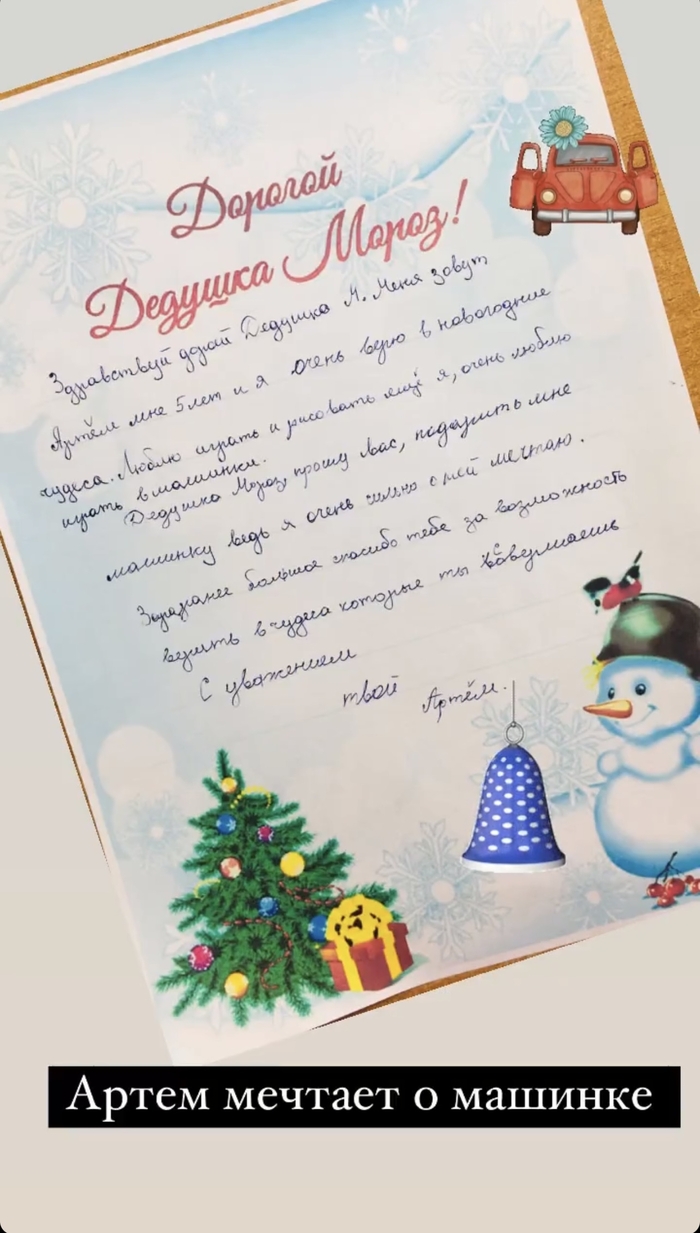 Дорогой
Дедушка Мороз!
Здравствуй дорой Дедушка М. Меня зовут
Артём мне 5 лет и я очень верю в новогодние
чудеса. Люблю играть и рисовать ещё я, очень люблю
играть в машинки.
Дедушка Мороз, прошу Вас, подарить мне
машинку ведь я очень сильно о ней мечтаю.
Заранее большое спасибо тебе за возможность
верить в чудеса которые ты совершаешь
С уважением
твой Артём.
Артем мечтает о машинке